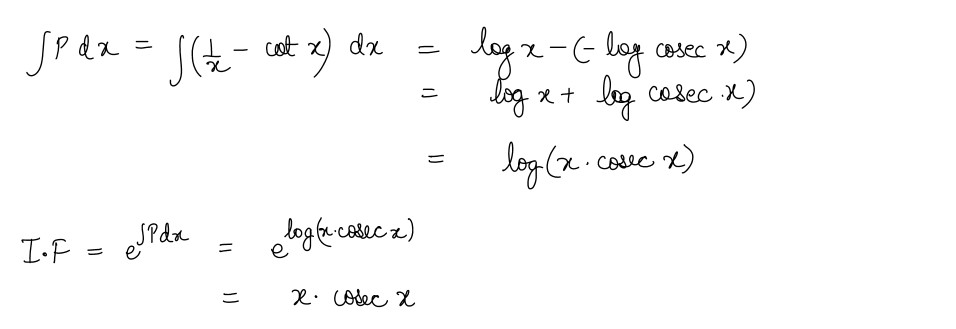 ∫P dx = ∫(1/x - cot x) dx = log x - (- log cosec x)
= log x + log cosec x)
= log(x · cosec x)
I.F = e^∫Pdx = e^log(x·cosec x)
= x · cosec x